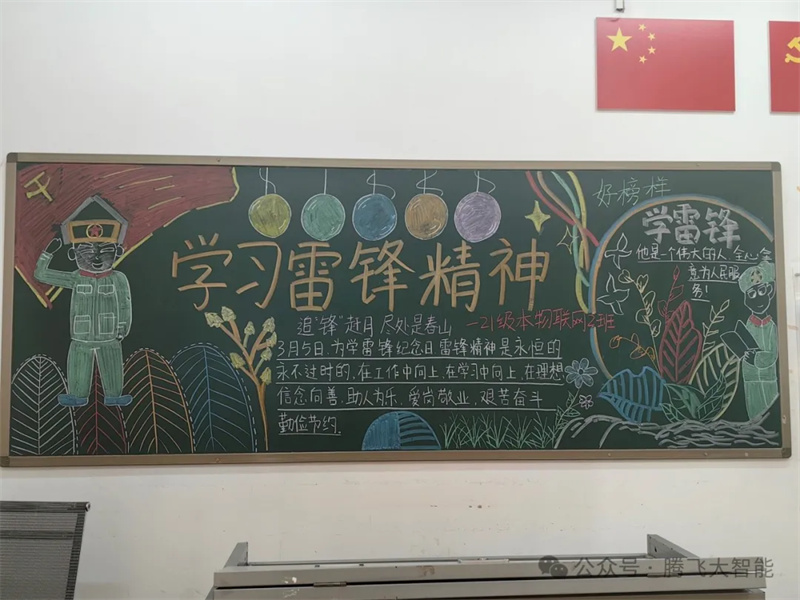 好榜样
学雷锋
他是一个伟大的人,全心全
意为人民服
务!
学习雷锋精神
追“锋”赶月 尽处是春山
一21级本物联网2班
3月5日,为学雷锋纪念日雷锋精神是永恒的
永不过时的,在工作中向上,在学习中向上,在理想
信念向善,助人为乐、爱岗敬业、艰苦奋斗
勤俭节约.
公众号·腾飞大智能